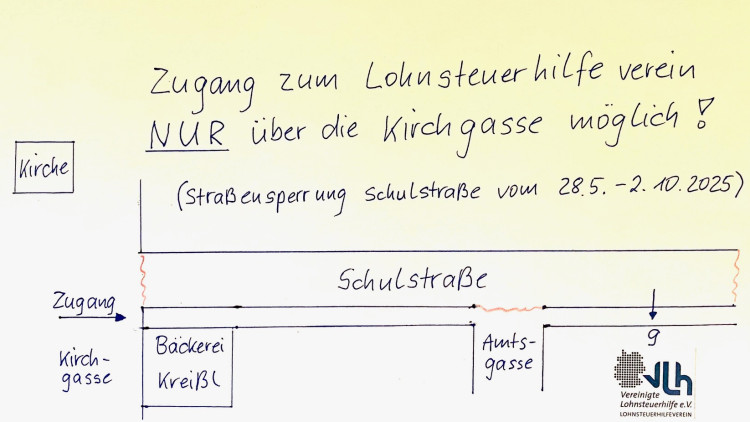 Zugang zum Lohnsteuerhilfeverein
NUR über die Kirchgasse möglich!
Kirche
(Straßensperrung Schulstraße vom 28.5.-2.10.2025)
Schulstraße
Zugang
Kirch-
gasse
Bäckerei
Kreißl
Amts-
gasse
9
vlh
Vereinigte
Lohnsteuerhilfe e.V.
LOHNSTEUERHILFEVEREIN